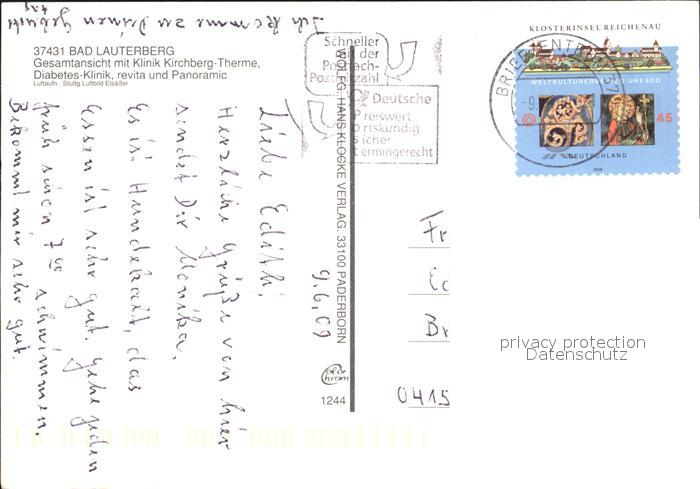 37431 BAD LAUTERBERG
Gesamtansicht mit Klinik Kirchberg-Therme,
Diabetes-Klinik, revita und Panoramic
Luftaufn.: Stuttg Luftbild Elsäßer
Liebe Edith,
Herzliche Grüße von hier
sendet Dir Monika.
Es ist Hundekalt, das
Essen ist sehr gut. Gehe jeden
früh schon 7 00 schwimmen.
Bekommt mir sehr gut.
Ich komme zu Deinem
9.6.09
WOLFG. HANS KLOCKE VERLAG, 33100 PADERBORN
color
chrom
1244
Schneller
mit der
Postfach-
Postleitzahl
Deutsche
Preiswert
Ortskundig
Sicher
Termingerecht
BRIEFZENTRUM 37
KLOSTERINSEL REICHENAU
WELTKULTURERBE UNESCO
45
DEUTSCHLAND
2008
Fr
Ed
Br
0415
privacy protection
Datenschutz